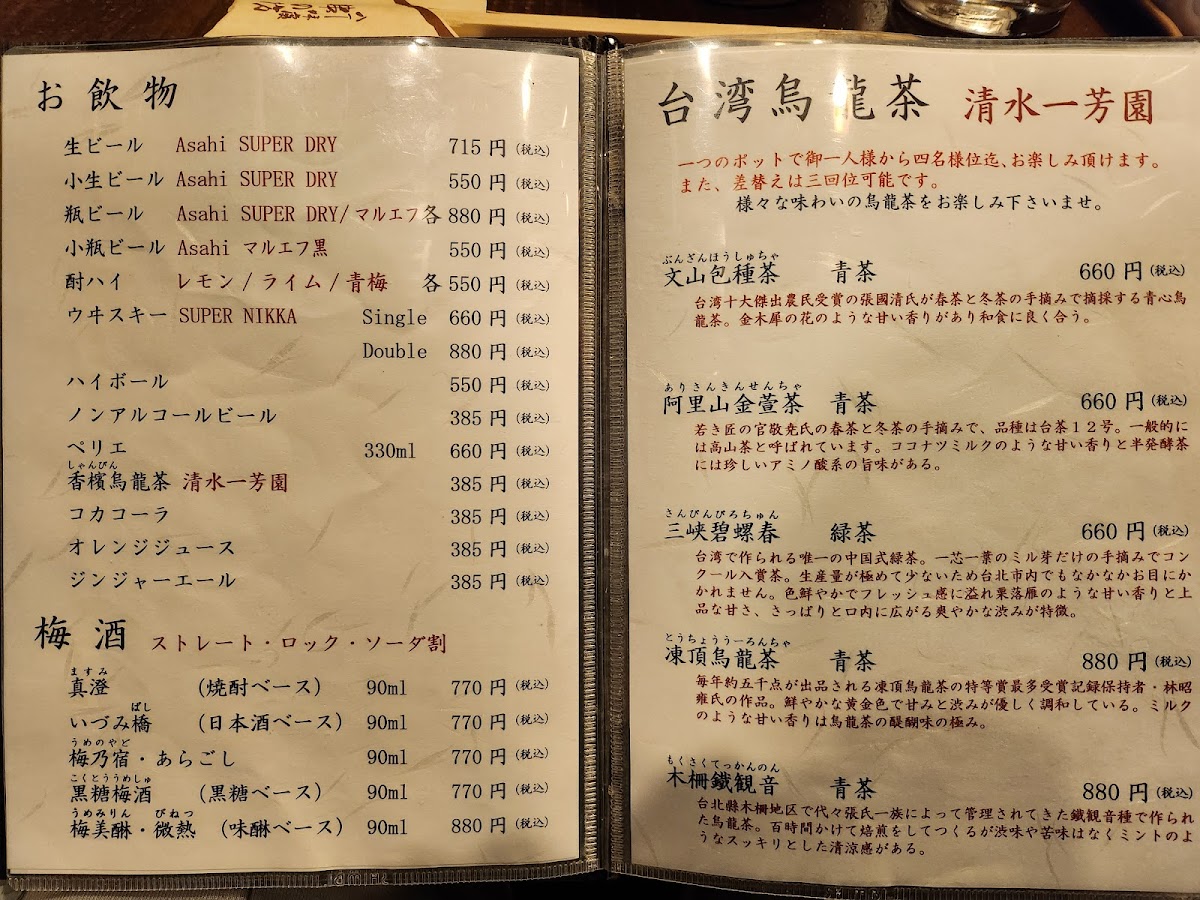 お飲物
生ビール Asahi SUPER DRY 715円(税込)
小生ビール Asahi SUPER DRY 550円(税込)
瓶ビール Asahi SUPER DRY/マルエフ各880円(税込)
小瓶ビール Asahi マルエフ黒 550円(税込)
酎ハイ レモン/ライム/青梅 各550円(税込)
ウヰスキー SUPER NIKKA Single 660円(税込)
Double 880円(税込)
ハイボール 550円(税込)
ノンアルコールビール 385円(税込)
ペリエ 330ml 660円(税込)
しゃんぴん
香檳烏龍茶 清水一芳園 385円(税込)
コカコーラ 385円(税込)
オレンジジュース 385円(税込)
ジンジャーエール 385円(税込)
梅酒 ストレート・ロック・ソーダ割
ますみ
真澄 (焼酎ベース) 90ml 770円(税込)
ばし
いづみ橋 (日本酒ベース) 90ml 770円(税込)
うめのやど
梅乃宿・あらごし 90ml 770円(税込)
こくとううめしゅ
黒糖梅酒 (黒糖ベース) 90ml 770円(税込)
うめみりん びねつ
梅美醂・微熱 (味醂ベース) 90ml 880円(税込)
台湾烏龍茶 清水一芳園
一つのポットで御一人様から四名様位迄、お楽しみ頂けます。
また、差替えは三回位可能です。
様々な味わいの烏龍茶をお楽しみ下さいませ。
ぶんざんほうしゅちゃ
文山包種茶 青茶 660円(税込)
台湾十大傑出農民受賞の張國清氏が春茶と冬茶の手摘みで摘採する青心烏
龍茶。金木犀の花のような甘い香りがあり和食に良く合う。
ありさんきんせんちゃ
阿里山金萱茶 青茶 660円(税込)
若き匠の官敬尭氏の春茶と冬茶の手摘みで、品種は台茶12号。一般的に
は高山茶と呼ばれています。ココナツミルクのような甘い香りと半発酵茶
には珍しいアミノ酸系の旨味がある。
さんぴんぴろちゅん
三峡碧螺春 緑茶 660円(税込)
台湾で作られる唯一の中国式緑茶。一芯一葉のミル芽だけの手摘みでコン
クール入賞茶。生産量が極めて少ないため台北市内でもなかなかお目にか
かれません。色鮮やかでフレッシュ感に溢れ栗落雁のような甘い香りと上
品な甘さ、さっぱりと口内に広がる爽やかな渋みが特徴。
とうちょううーろんちゃ
凍頂烏龍茶 青茶 880円(税込)
毎年約五千点が出品される凍頂烏龍茶の特等賞最多受賞記録保持者・林昭
雍氏の作品。鮮やかな黄金色で甘みと渋みが優しく調和している。ミルク
のような甘い香りは烏龍茶の醍醐味の極み。
もくさくてっかんのん
木柵鐵観音 青茶 880円(税込)
台北縣木柵地区で代々張氏一族によって管理されてきた鐵観音種で作られ
た烏龍茶。百時間かけて焙煎をしてつくるが渋味や苦味はなくミントのよ
うなスッキリとした清涼感がある。